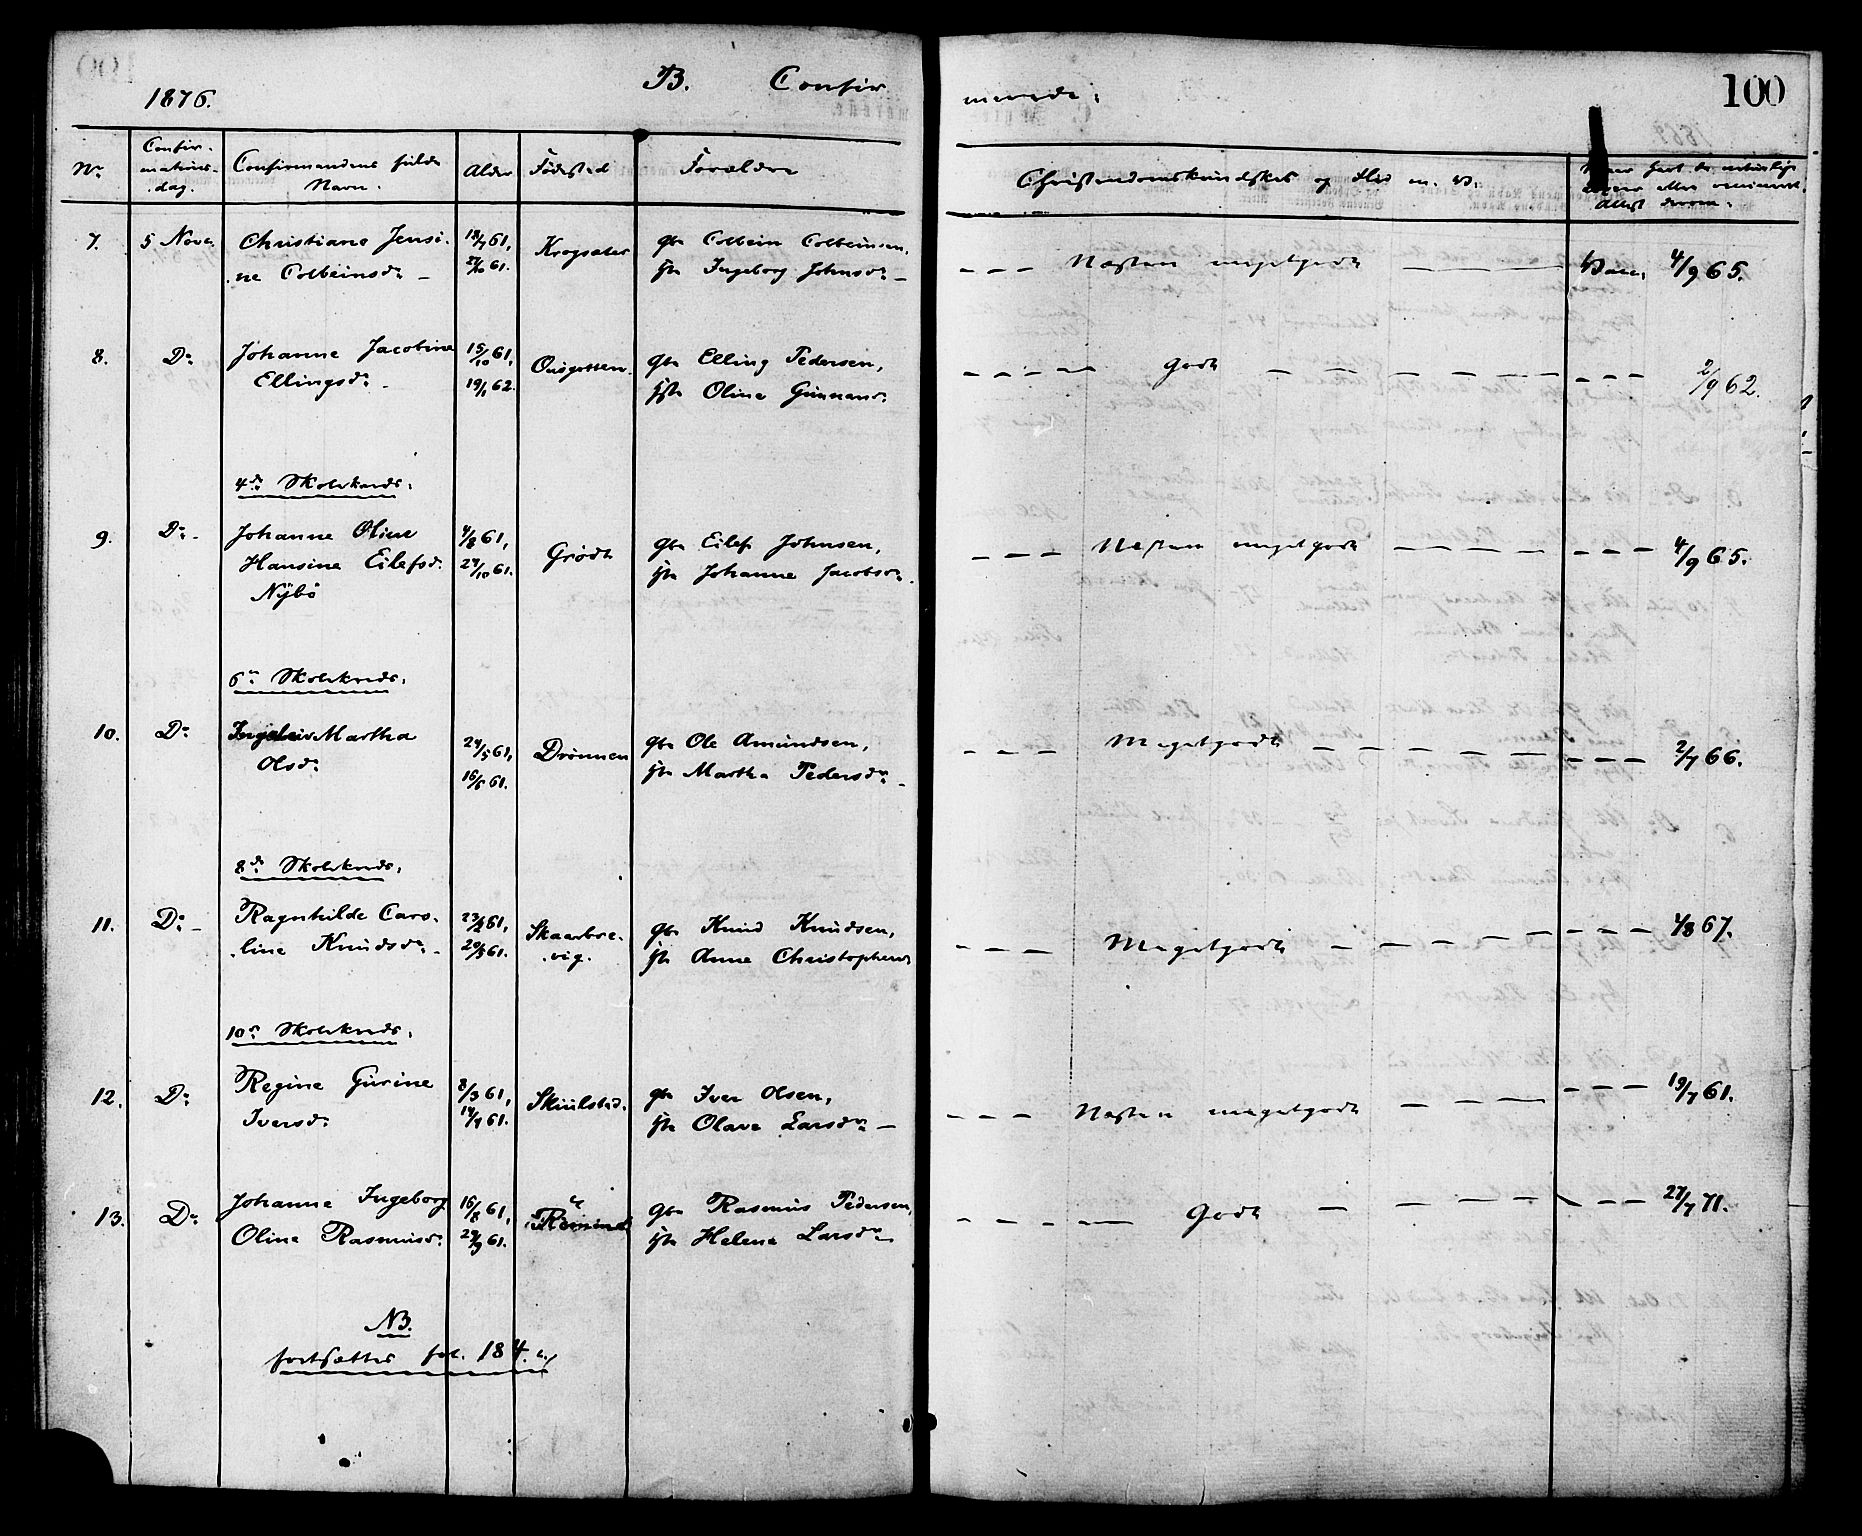 1876. B. Confir merede. 100
No Confir-mations-dag. Confirmandens fulde Navn. Alder Födested Forældre Christendomskundskab og Flid m. V.
7. 5 Novr Christiane Jensi-
ne Colbeinsdr – 18/7 61, 27/10 61. Krogsæter gbr Colbein Colbeinsen, hst Ingeborg Johnsdr – – – – Næsten megetgodt – – – Vacc. 4/9 65.
8. Do Johanne Jacobine
Ellingsdr. 15/10 61, 19/1 62. gbr Elling Pedersen, hst Oline Gunnarsdr – – – – godt – – – – – – – 2/9 62.
4de Skolekreds.
9. Do – Johanne Oline
Hansine Eilefsdr.
Nÿbö 4/8 61, 27/10 61. Grödt gbr Eilef Johnsen, hst Johanne Jacobsdr. – – – Næsten megetgodt – – – – – – – 4/9 65.
6te Skolekreds.
10. Do Martha
Olsdr 24/5 61, 16/6 61. Drönnen gbr Ole Amundsen, hst Martha Pedersdr – – – – Megetgodt – – – – – – – – 2/7 66.
8de Skolekreds.
11. Do – Ragnhilde Caro-
line Knudsdr – 23/2 61, 29/3 61. Skaarbre-vig. gbr Knud Knudsen, hst Anne Christophersdr – – – Megetgodt – – – – – – – – 4/8 67.
10de Skolekreds.
12. Do Regine Gurine
Iversdr 8/3 61, 14/4 61. gbr Iver Olsen, hst Olave Larsdr – – – – Næsten megetgodt – – – – – – 19/7 61.
13. Do Johanne Ingeborg
Oline Rasmusdr. 16/8 61, 29/9 61. gbr Rasmus Pedersen, hst Helene Larsdr – – – – Godt – – – – – – 27/7 71.
NB.
fortsættes fol. 184.